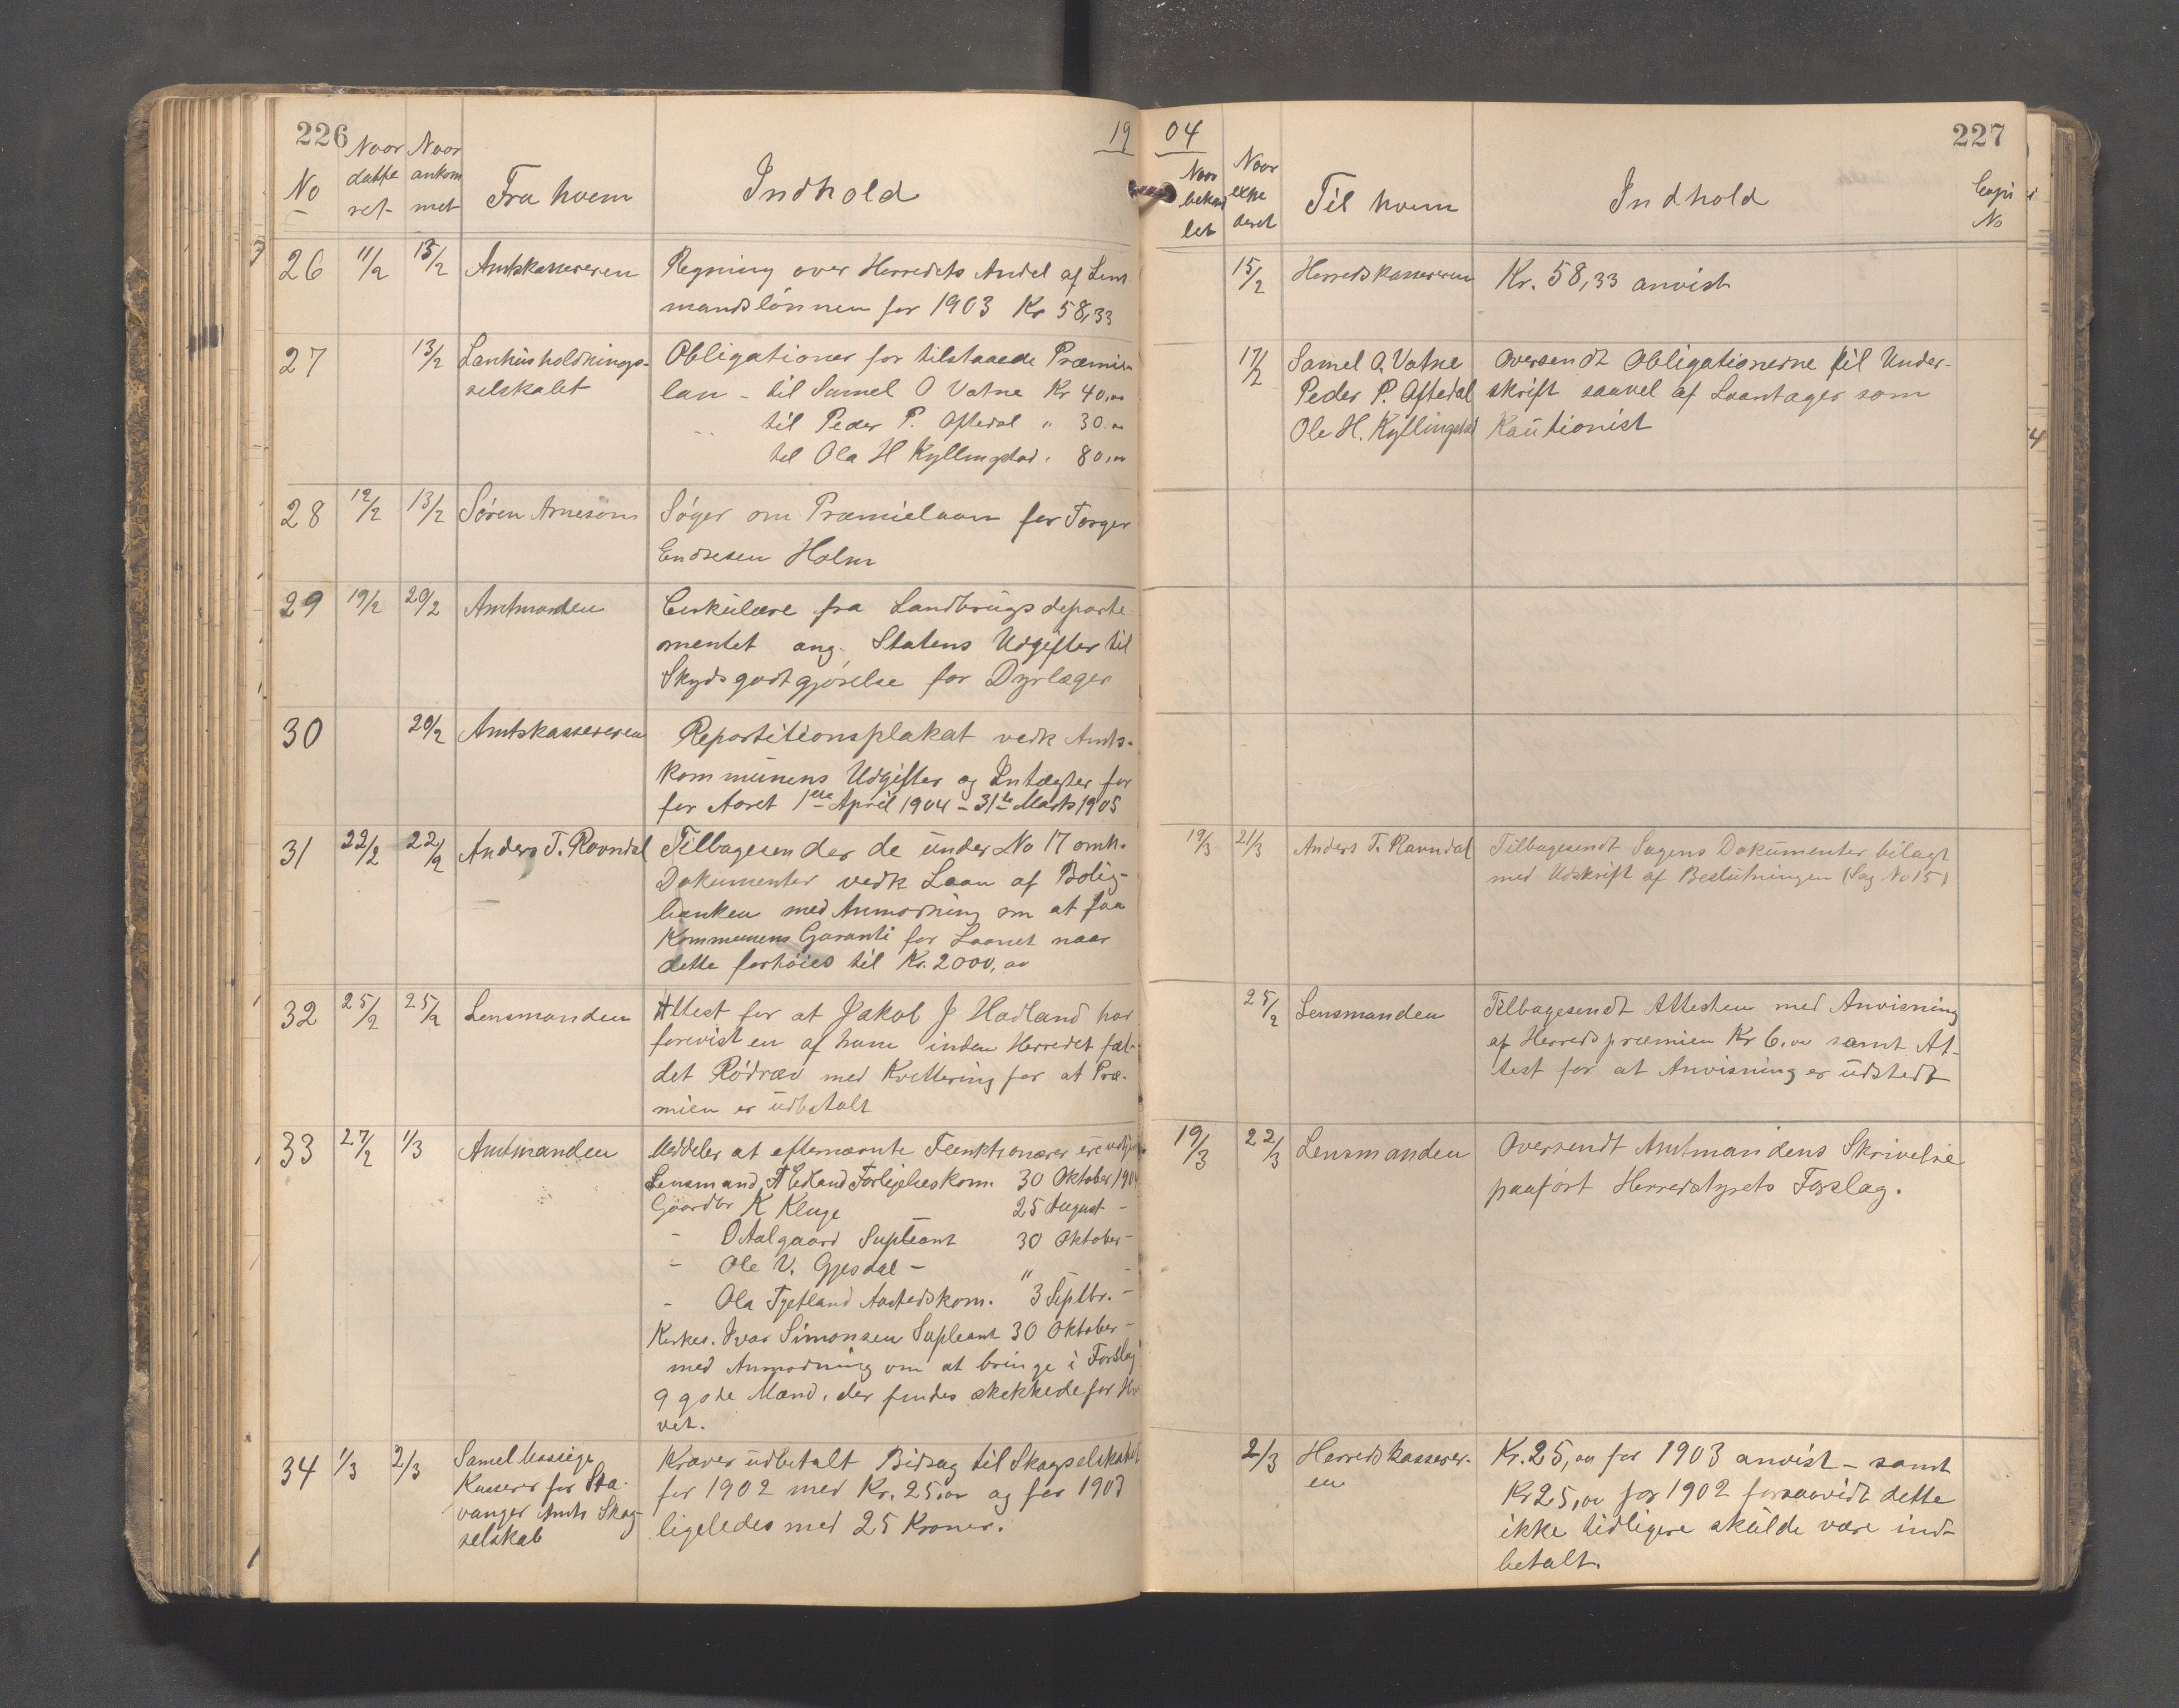 226
19
No
Naar datte ret
Naar ankom met
Fra hvem
Indhold
26 11/2 13/2 Amtskassereren Regning over Herredets Andel af Lens
mandslönnen for 1903 Kr 58,33
27 13/2 Lanhusholdnings- Obligationer for tilstaaede Præmie-
selskabet lan - til Samel O Vatne Kr 40,00
til Peder P. Oftedal " 30.00
til Ola H Kyllingstad " 80,00
28 12/2 13/2 Sören Arnesen Söger om Præmielaan for Torger
Endresen Holm
29 19/2 20/2 Amtmanden Cirkulære fra Landbrugsdeparte
mentet ang. Statens Udgifter til
Skydsgodtgjörelse for Dyrlæger
30 20/2 Amtskassereren Repartitionsplakat vedk Amts-
kommunens Udgifter og Intægter for
for Aaret 1ste April 1904 - 31te Marts 1905
31 22/2 22/2 Anders T. Ravndal Tilbagesender de under No 17 omh.
Dokumenter vedk Laan af Bolig-
banken med Anmodning om at faa
Kommunens Garanti for Laanet naar
dette forhöies til Kr. 2000,00
32 25/2 25/2 Lensmanden Attest for at Jakob J Hadland har
forevist en af ham inden Herredet fæl-
det Rödræv med Kvittering for at Præ-
mien er udbetalt
33 27/2 1/3 Amtmanden Meddeler at efternævnte Funktionærer ere
Lensmand Edland Forligelseskom. 30 Oktober 1904
Gaardbr K Kluge 25 August -
- O Aalgaard Supleant 30 Oktober -
- Ole V. Gjesdal - " -
- Ola Tjetland Aastedskom. 3 Septbr. -
Kirkes. Ivar Simonsen Supleant 30 Oktober -
med Anmodning om at bringe i Forslag
9 gode Mænd, der findes skikkede for
vet.
34 1/3 2/3 Samel Kræver udbetalt Bidrag til Skogselskabet
Kasserer for Sta- for 1902 med Kr. 25,00 og for 1903
vanger Amts Skog- ligeledes med 25 Kroner.
selskab
04
227
Naar behand let
Naar expe deret
Til hvem
Indhold
Copi No
15/2 Herredskassereren Kr. 58,33 anvist
17/2 Samel O. Vatne Oversendt Obligationerne til Under-
Peder P. Oftedal skrift saavel af Laantager som
Ole H. Kyllingstad Kautionist
19/3 21/3 Anders T. Ravndal Tilbagesendt Sagens Dokumenter bilagt
med Udskrift af Beslutningen (Sag No 15)
25/2 Lensmanden Tilbagesendt Attesten med Anvisning
af Herredspræmien Kr 6,00 samt At-
test for at Anvisning er udstedt
19/3 22/3 Lensmanden Oversendt Amtmandens Skrivelse
paaført Herredstyrets Forslag.
2/3 Herredskasserer- Kr. 25,00 for 1903 anvist - samt
en Kr 25,00 for 1902 forsaavidt dette
ikke tidligere skulde være ind-
betalt.